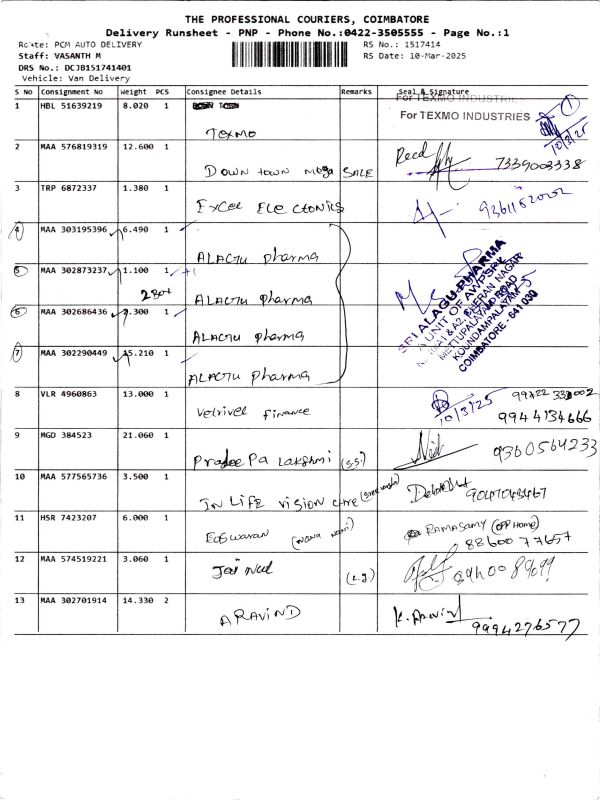 THE PROFESSIONAL COURIERS, COIMBATORE
Delivery Runsheet - PNP - Phone No.:0422-3505555 - Page No.:1
Route: PCM AUTO DELIVERY RS No.: 1517414
Staff: VASANTH M RS Date: 10-Mar-2025
DRS No.: DCJB151741401
Vehicle: Van Delivery
S No Consignment No Weight PCS Consignee Details Remarks Seal & Signature
For TEXMO INDUSTRIES
1 HBL 51639219 8.020 1 Texmo For TEXMO INDUSTRIES 1 10/3/25
2 MAA 576819319 12.600 1 Down town mega SALE Recd 7339003338
3 TRP 6872337 1.380 1 Excel Electonics
4 MAA 303195396 6.490 1 ALAGU pharma
5 MAA 302873237 1.100 1 +1 ALAGU pharma
6 MAA 302686436 1 ALAGU pharma
7 MAA 302290449 15.210 1 ALAGU pharma
SRI ALAGU PHARMA
A UNIT OF AWPSPL
CHERAN NAGAR
METTUPALAYAM ROAD
KOUNDAMPALAYAM
COIMBATORE - 641030
8 VLR 4960863 13.000 1 Vetrivel finance 10/3/25 9944134666
9 MGD 384523 21.060 1 PradeePa Lakshmi (S.S.) 9360564233
10 MAA 577565736 3.500 1 IN LIFE vision care
11 HSR 7423207 6.000 1 Eoswaran RAMASAMY (OPP Home) 88600 77657
12 MAA 574519221 3.060 1
13 MAA 302701914 14.330 2 ARAVIND K. Aravind 9994276577